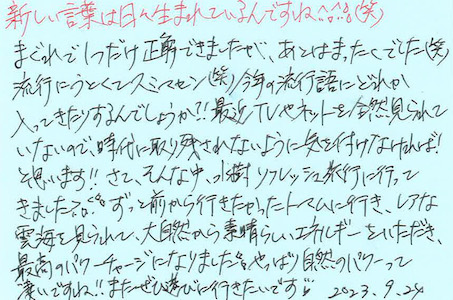 新しい言葉は日々生まれているんですね(笑)
まぐれで1つだけ正解できましたが、あとはまったくでした(笑)
流行にうとくてスミマセン(笑)今年の流行語にどれか
入ってきたりするんでしょうか!!最近TVやネットを全然見られて
いないので、時代に取り残されないように気を付けなければ!
と思います!!さて、そんな中、水樹リフレッシュ旅行に行って
きました。ずっと前から行きたかったトマムに行き、レアな
雲海を見られて、大自然から素晴らしいエネルギーをいただき、
最高のパワーチャージになりました。やっぱり自然のパワーって
凄いですね!!またぜひ遊びに行きたいです 2023.9.24